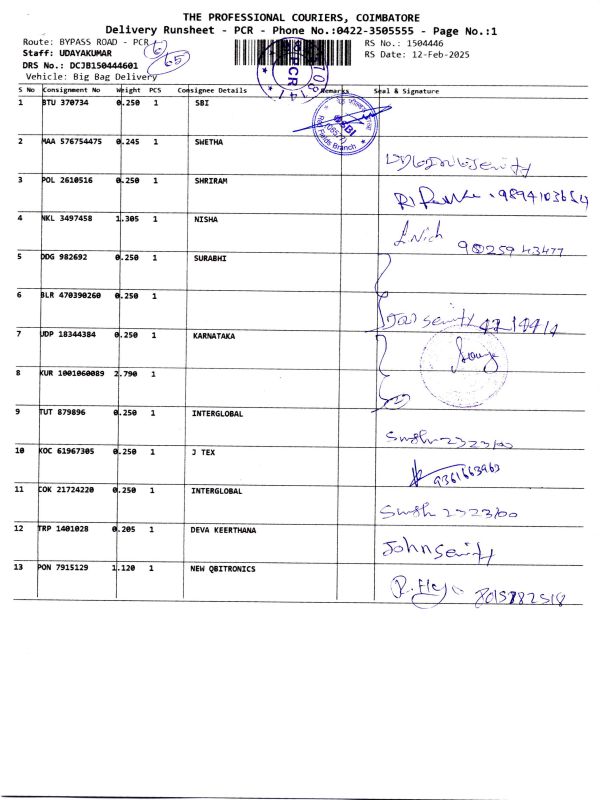 THE PROFESSIONAL COURIERS, COIMBATORE
Delivery Runsheet - PCR - Phone No.:0422-3505555 - Page No.:1
Route: BYPASS ROAD - PCR 6
RS No.: 1504446
Staff: UDAYAKUMAR 65
RS Date: 12-Feb-2025
DRS No.: DCJB150444601
Vehicle: Big Bag Delivery
PCR
S No Consignment No Weight PCS Consignee Details Remarks Seal & Signature
1 BTU 370734 0.250 1 SBI
SBI
Branch
2 MAA 576754475 0.245 1 SWETHA
3 POL 2610516 0.250 1 SHRIRAM
9894103654
4 NKL 3497458 1.305 1 NISHA
90259 43477
5 DDG 982692 0.250 1 SURABHI
6 BLR 470390260 0.250 1
7 UDP 18344384 0.250 1 KARNATAKA
8 KUR 1001060089 2.790 1
9 TUT 879896 0.250 1 INTERGLOBAL
10 KOC 61967305 0.250 1 J TEX
9361663963
11 COK 21724220 0.250 1 INTERGLOBAL
12 TRP 1401028 0.205 1 DEVA KEERTHANA
13 PON 7915129 1.120 1 NEW QBITRONICS